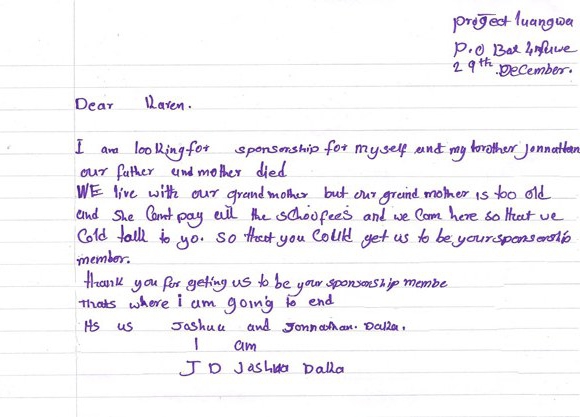 project luangwa
P.O Box Mfuwe
29th December.
Dear Karen.
I am looking for sponsorship for myself and my brother Jonnathan
our father and mother died
WE live with our grandmother but our grand mother is too old
and she cant pay all the schoofees and we cam here so that we
Cold talk to yo. so that you could get us to be your sponsership
member.
thank you for geting us to be your sponsorship membe
thats where i am going to end
Its us Joshua and Jonnathan. Dalla.
I am
J D Joshua Dalla